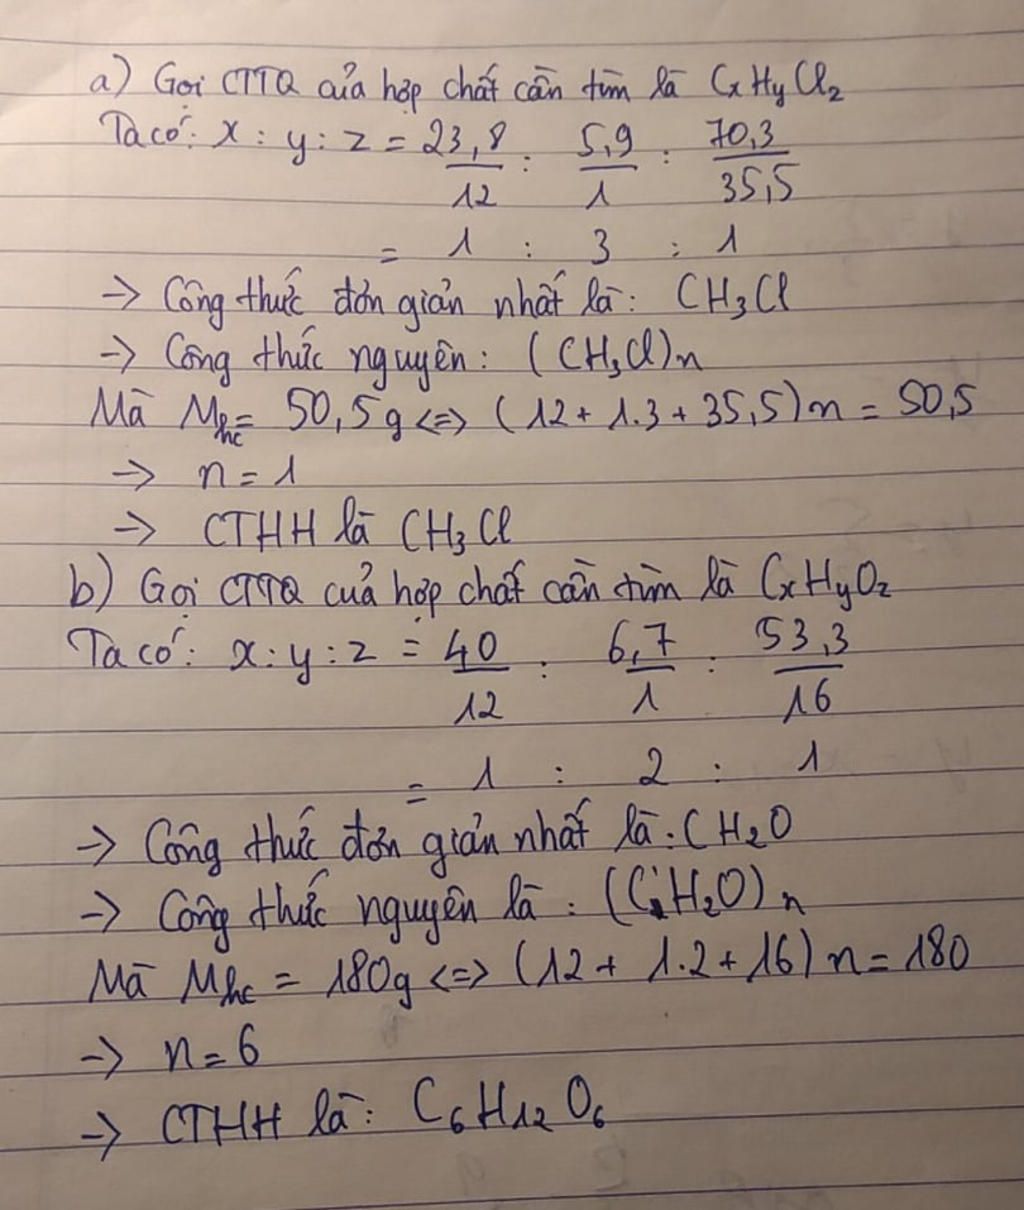 a) Gọi CTTQ của hợp chất cần tìm là CxHyClz
Ta có: x : y : z = 23,8/12 : 5,9/1 : 70,3/35,5
= 1 : 3 : 1
→ Công thức đơn giản nhất là: CH₃Cl
→ Công thức nguyên: (CH₃Cl)n
Mà Mhc = 50,5g <=> (12 + 1.3 + 35,5)n = 50,5
→ n = 1
→ CTHH là CH₃Cl
b) Gọi CTTQ của hợp chất cần tìm là CxHyOz
Ta có: x : y : z = 40/12 : 6,7/1 : 53,3/16
= 1 : 2 : 1
→ Công thức đơn giản nhất là: CH₂O
→ Công thức nguyên là : (CH₂O)n
Mà Mhc = 180g <=> (12 + 1.2 + 16)n = 180
→ n = 6
→ CTHH là: C₆H₁₂O₆